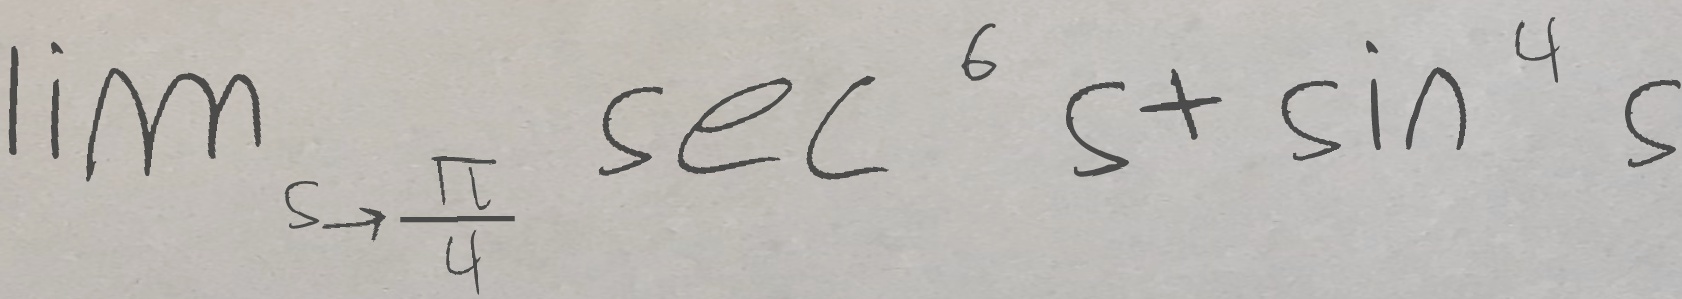 \lim_{s \to \frac{\pi}{4}} \sec^6 s + \sin^4 s